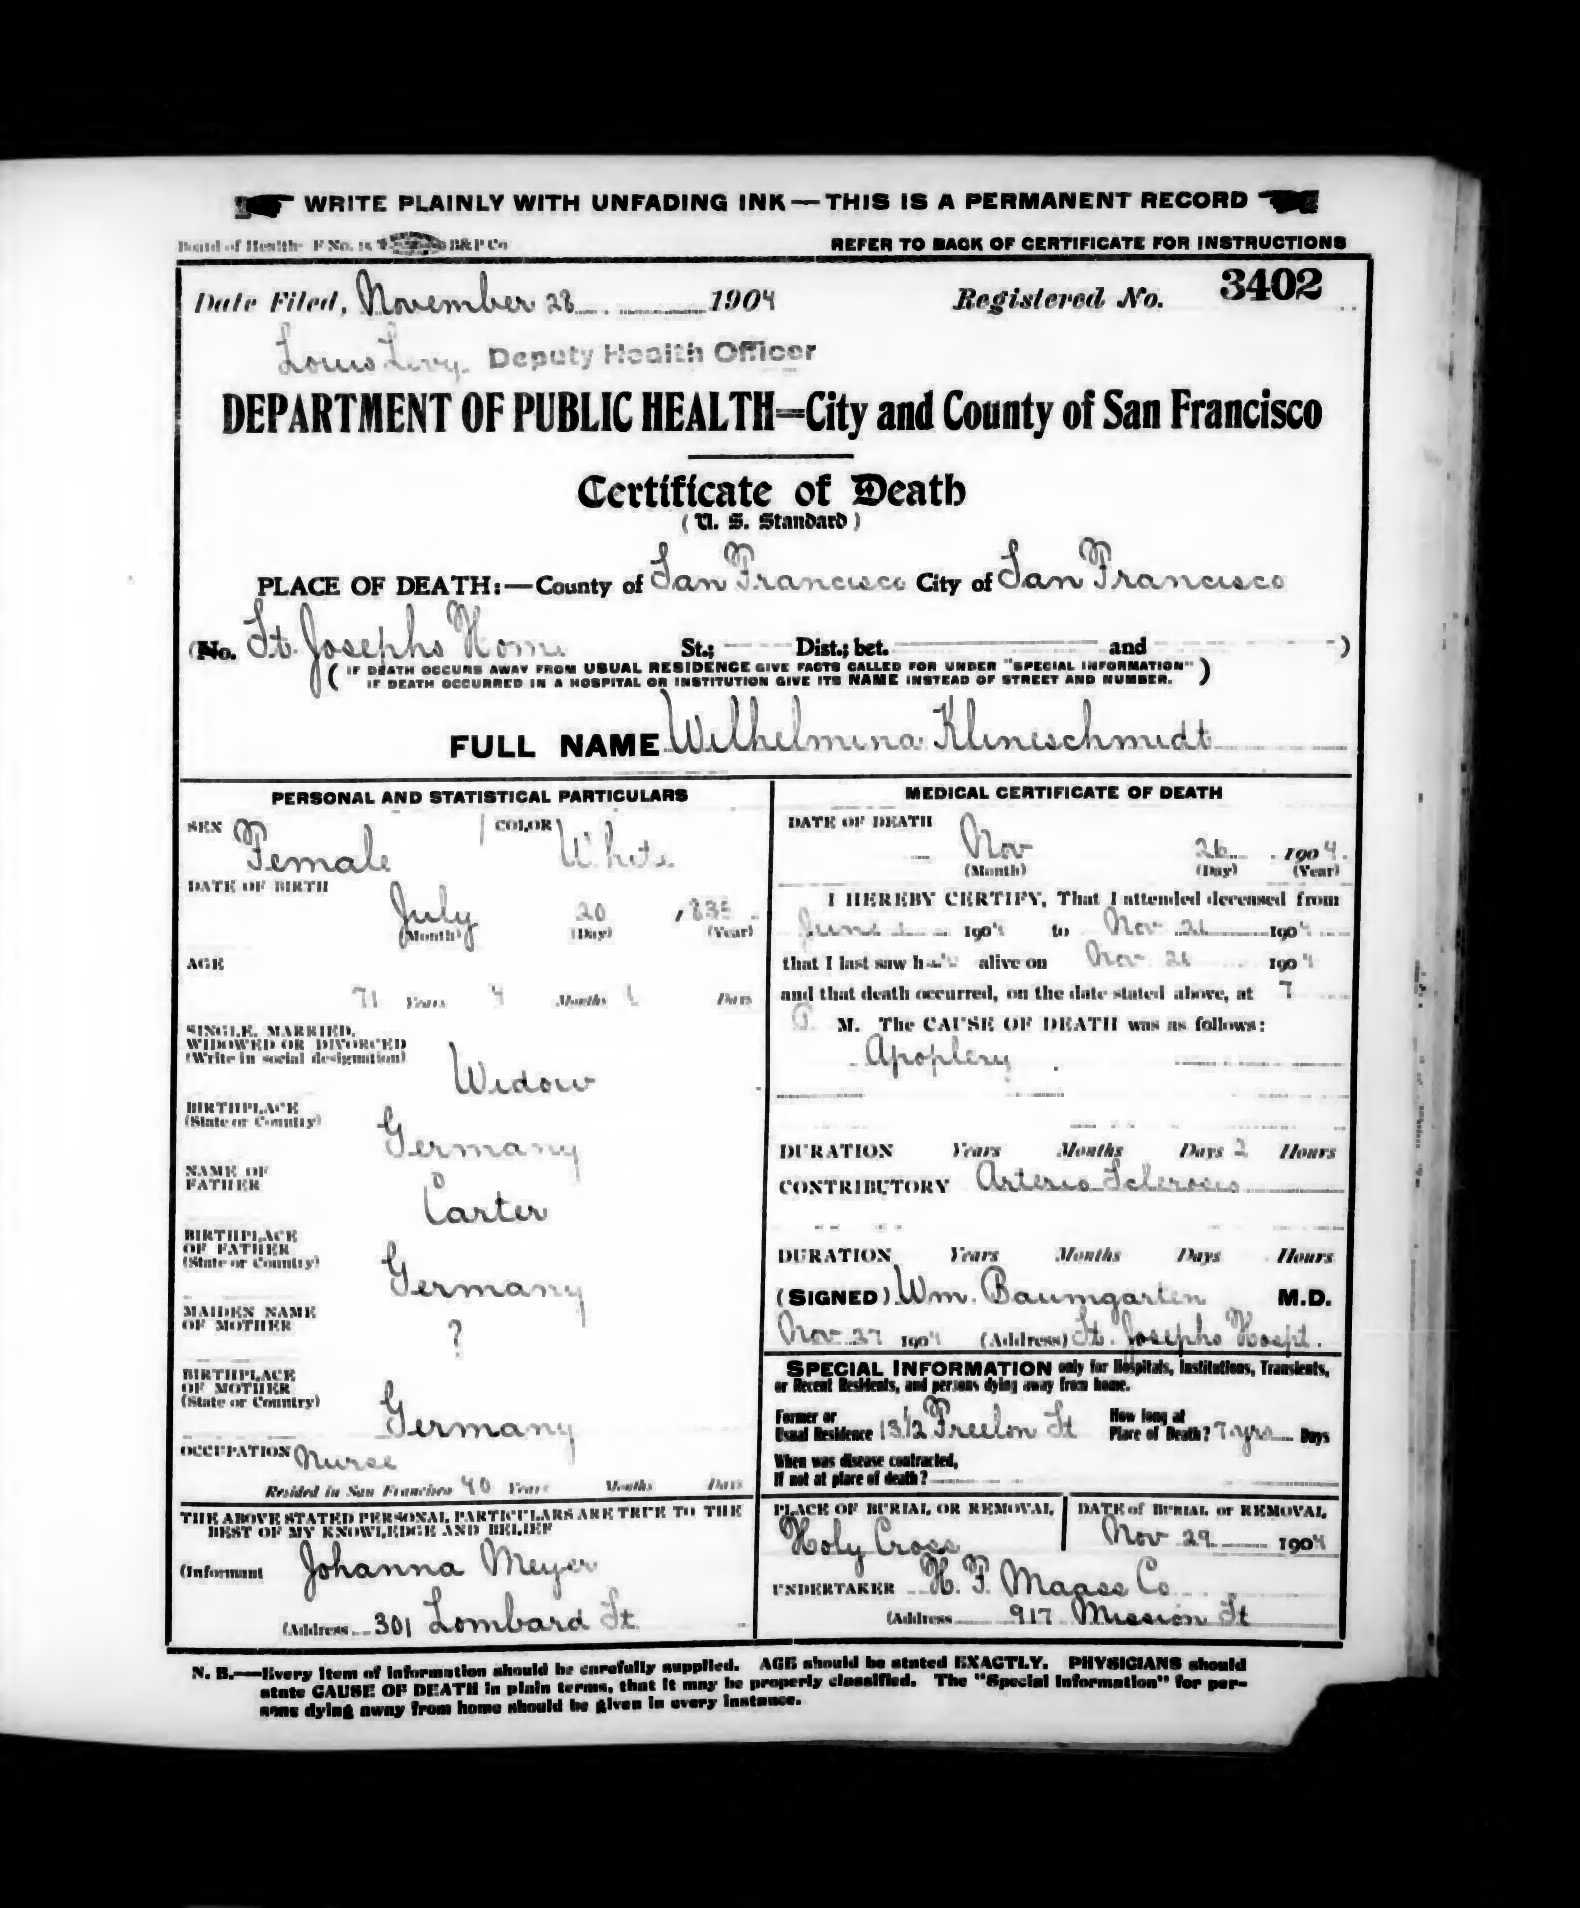 WRITE PLAINLY WITH UNFADING INK—THIS IS A PERMANENT RECORD
Board of Health F No. 15 B&P Co
REFER TO BACK OF CERTIFICATE FOR INSTRUCTIONS
Date Filed, November 28 1904 Registered No. 3402
Louis Levy. Deputy Health Officer
DEPARTMENT OF PUBLIC HEALTH=City and County of San Francisco
Certificate of Death
(U. S. Standard)
PLACE OF DEATH:—County of San Francisco City of San Francisco
(No. St. Josephs Home St.; Dist.; bet. and )
( IF DEATH OCCURS AWAY FROM USUAL RESIDENCE GIVE FACTS CALLED FOR UNDER "SPECIAL INFORMATION" )
IF DEATH OCCURRED IN A HOSPITAL OR INSTITUTION GIVE ITS NAME INSTEAD OF STREET AND NUMBER.
FULL NAME Wilhelmina Klineschmidt
PERSONAL AND STATISTICAL PARTICULARS
SEX Female COLOR White
DATE OF BIRTH
July 20 ,835
(Month) (Day) (Year)
AGE
71 Years 4 Months 6 Days
SINGLE, MARRIED,
WIDOWED OR DIVORCED
(Write in social designation)
Widow
BIRTHPLACE
(State or Country)
Germany
NAME OF
FATHER
Carter
BIRTHPLACE
OF FATHER
(State or Country)
Germany
MAIDEN NAME
OF MOTHER
?
BIRTHPLACE
OF MOTHER
(State or Country)
Germany
OCCUPATION Nurse
Resided in San Francisco 40 Years Months Days
THE ABOVE STATED PERSONAL PARTICULARS ARE TRUE TO THE
BEST OF MY KNOWLEDGE AND BELIEF
(Informant Johanna Meyer
(Address 301 Lombard St.
MEDICAL CERTIFICATE OF DEATH
DATE OF DEATH
Nov 26 1904.
(Month) (Day) (Year)
I HEREBY CERTIFY, That I attended deceased from
June 1904 to Nov 26 1904
that I last saw her alive on Nov 26 1904
and that death occurred, on the date stated above, at 7
P. M. The CAUSE OF DEATH was as follows:
Apoplexy
DURATION Years Months Days 2 Hours
CONTRIBUTORY Arterio Sclerosis
DURATION Years Months Days Hours
(SIGNED) Wm. Baumgarten M.D.
Nov 27 1904 (Address) St. Josephs Hospt.
SPECIAL INFORMATION only for Hospitals, Institutions, Transients,
or Recent Residents, and persons dying away from home.
Former or
Usual Residence 13½ Freelon St
How long at
Place of Death? 7 yrs Days
When was disease contracted,
If not at place of death?
PLACE OF BURIAL OR REMOVAL
Holy Cross
DATE of BURIAL or REMOVAL
Nov 29 1904
UNDERTAKER H. F. Maass Co
(Address 917 Mission St
N. B.—Every item of information should be carefully supplied. AGE should be stated EXACTLY. PHYSICIANS should
state CAUSE OF DEATH in plain terms, that it may be properly classified. The "Special Information" for per-
sons dying away from home should be given in every instance.